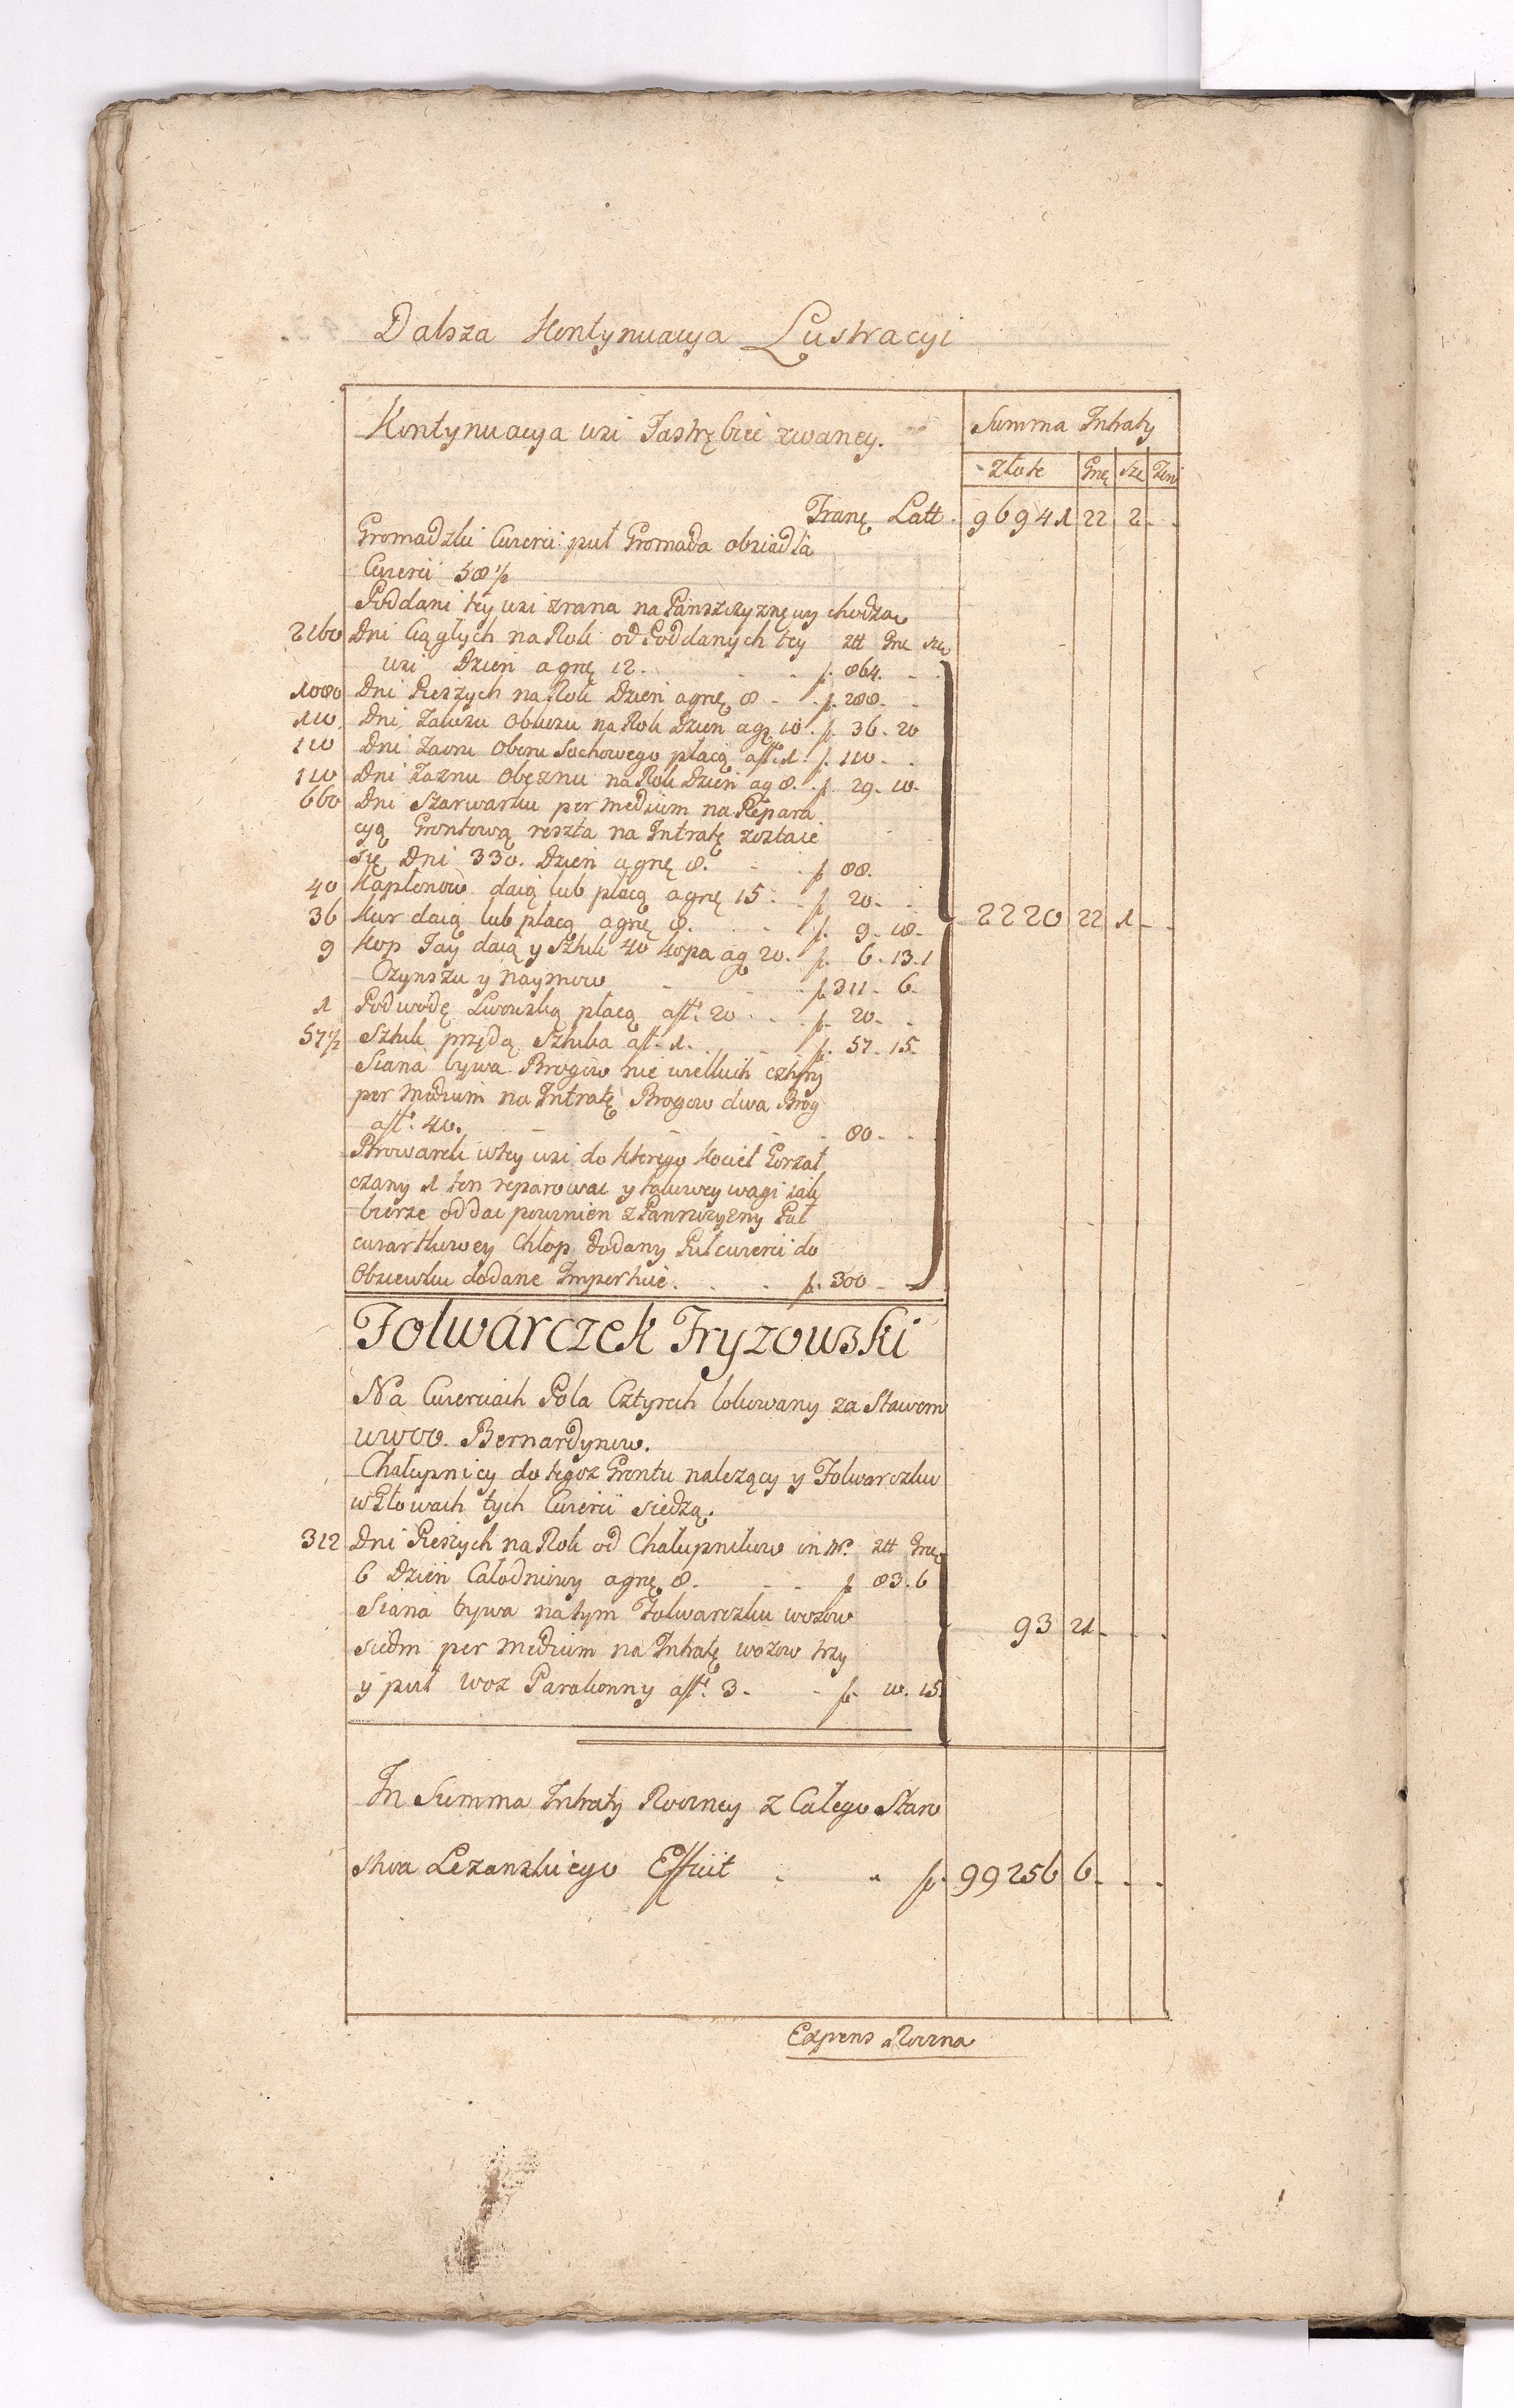 Dalsza Kontynuacya Lustracyi
Kontynuacya wsi Jastrębice zwaney.
Summa Intraty
Złote Gnę Sze Den
Tranę Latt. 96941 22 2 - -
Gromadzki Cwierci puł Gromada obsiadła
Cwierci 58 1/2
Poddani tey wsi zrana na Pańszczyznę wychodzą
2160 Dni Ciągłych na Rok od Poddanych tey ztt Gne sze
wsi Dzień a gnę 12. - - f. 864. - -
1080 Dni Pieszych na Rok Dzień a gnę 8 - - f. 288. - -
110 Dni Zakosu Obkosu na Rok Dzień a gę 10. f. 36. 20
110 Dni Zaoru Oboru Sochowego płacą a ff. 1. f. 110. - -
110 Dni Zaznu Obęznu na Rok Dzień a g 8. f. 29. 10.
660 Dni Szarwarku per medium na Repara
cyą Grontową reszta na Intratę zostaie
się Dni 330. Dzień a gnę 8. - f. 88.
40 Kapłonow daią lub płacą a gnę 15. - f. 20. - -
36 Kur daią lub płacą a gnę 8. - f. 9. 18.
2220 22 1 - -
9 Kop Jay daią y Sztuk 40 kopa a g 20. f. 6. 13. 1
Czynszu y Naymow - - f. 311. 6.
1 Podwodę Lwowską płacą a ff. 20 - - f. 20. - -
57 1/2 Sztuk przędą Sztuka a ff. 1. - - f. 57. 15.
Siana bywa Brogow nie wielkich cztyry
per medium na Intratę Brogow dwa Brog
a ff. 40. - - - 80. - -
Browarek w tey wsi do ktorego Kocieł Gorzał
czany 1 ten reparowac y takowey wagi iak
bierze oddac powinien z Pańszczyzny Puł
cwartkowey Chłop dodany Puł cwierci do
Obsiewku dodane Importuie. - - f. 300 - -
Folwárczek Fryzowski
Na Cwierciach Pola Cztyrech lokowany za Stawem
WWOO. Bernardynow.
Chałupnicy do tegoz Grontu nalezący y Folwarczku
w Głowach tych Cwierci siedzą.
312 Dni Pieszych na Rok od Chałupnikow in No. ztt Gnę
6 Dzień Całodniowy a gnę 8. - - f. 83. 6
Siana bywa na tym Folwarczku wozow
93 21 - - -
siedm per medium na Intratę wozow trzy
y puł woz Parokonny a ff. 3. - f. 10. 15.
In Summa Intraty Roczney z Całego Staro
stwa Lezanskiego Efficit - - f. 99256 6 - - -
Expens a Roczna